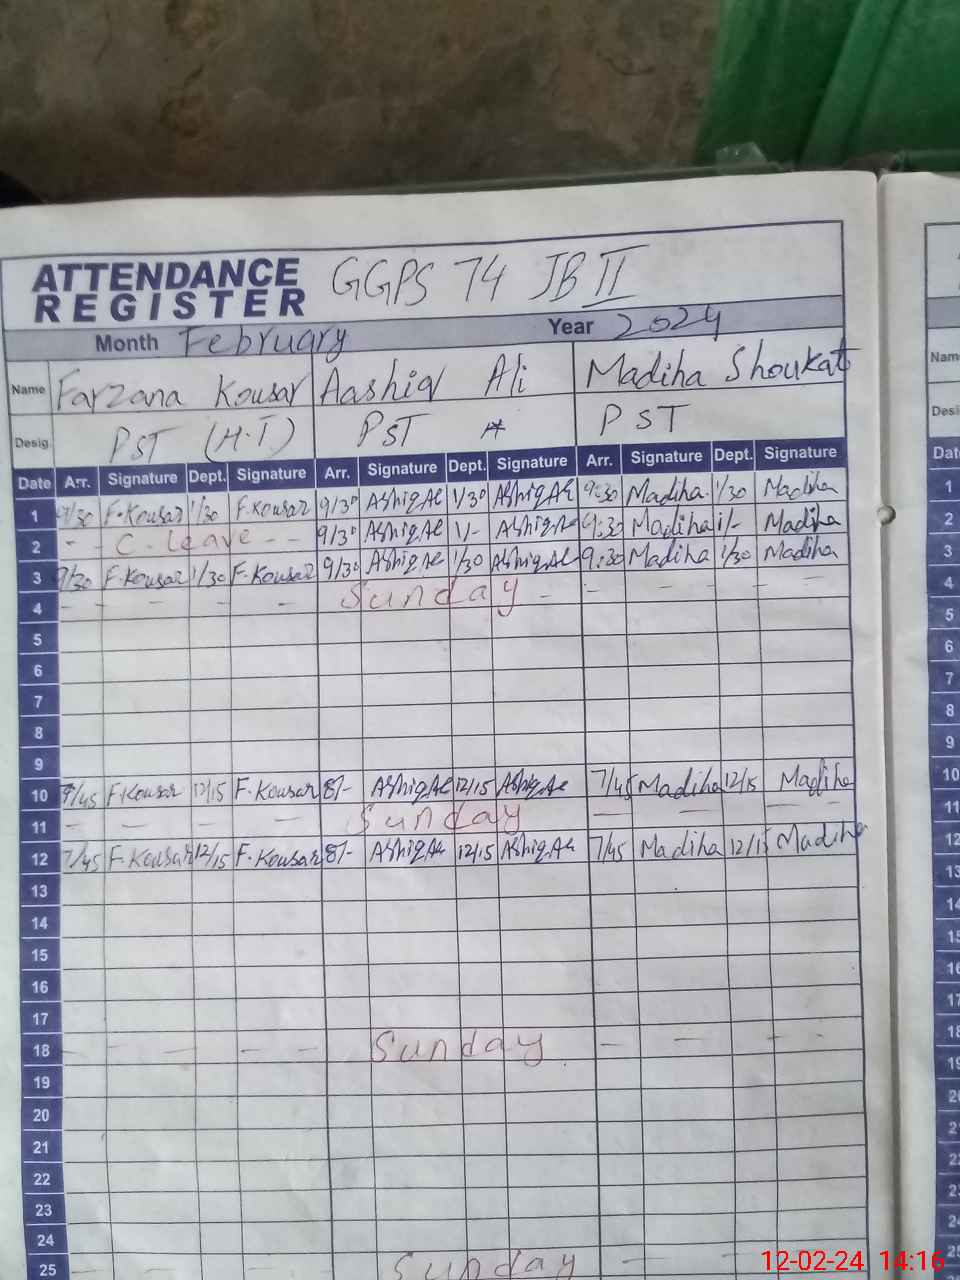 ATTENDANCE REGISTER GGPS 74 JB II
Month February Year 2024
Name Farzana Kousar Aashiq Ali Madiha Shoukat
Desig. PST (H.T) PST PST
Date Arr. Signature Dept. Signature Arr. Signature Dept. Signature Arr. Signature Dept. Signature
1 9/30 F.Kousar 1/30 F.Kousar 9/30 AshiqAe 1/30 AshiqAe 9:30 Madiha 1/30 Madiha
2 - - C. leave - - 9/30 AshiqAe 1/- AshiqAe 9:30 Madiha 1/- Madiha
3 9/30 F.Kousar 1/30 F.Kousar 9/30 AshiqAe 1/30 AshiqAe 9:30 Madiha 1/30 Madiha
4 - - - - Sunday - - - - -
5
6
7
8
9
10 F.Kousar 12/15 F.Kousar 8/- AshiqAe 12/15 AshiqAe 7/45 Madiha 12/15 Madiha
11 - - - - Sunday - - - -
12 7/45 F.Kousar 12/15 F.Kousar 8/- AshiqAe 12/15 AshiqAe 7/45 Madiha 12/15 Madiha
13
14
15
16
17
18 - - - - Sunday - - - -
19
20
21
22
23
24
25 Sunday
Name
Desig
Date
1
2
3
4
5
6
7
8
9
10
11
12
13
14
15
16
17
18
19
12-02-24 14:16